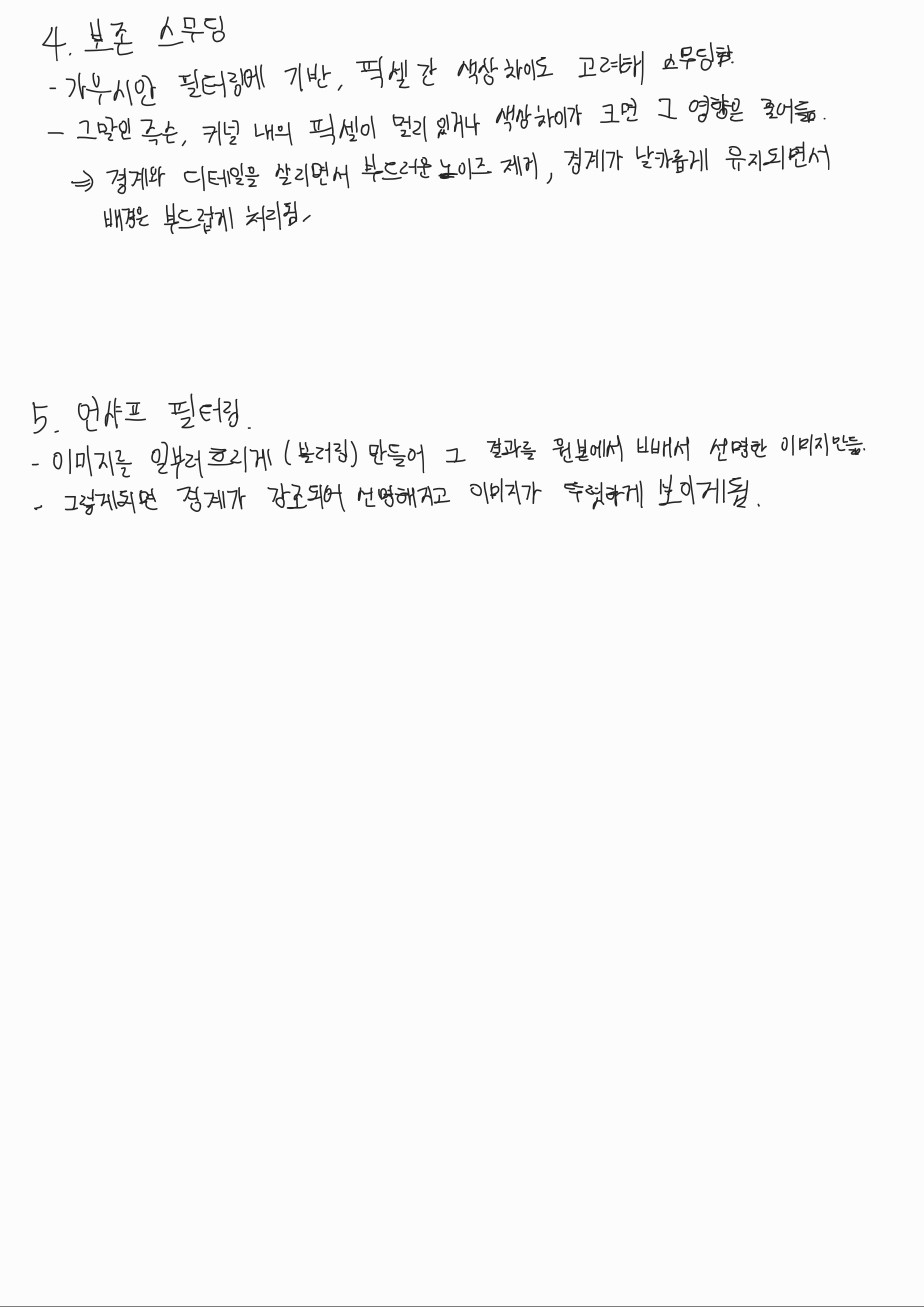 4. 보존 스무딩
- 가우시안 필터링에 기반, 픽셀 간 색상 차이도 고려해 스무딩함.
- 그말인 즉슨, 커널 내의 픽셀이 멀리 있거나 색상 차이가 크면 그 영향은 줄어듦.
⇒ 경계와 디테일을 살리면서 부드러운 노이즈 제거, 경계가 날카롭게 유지되면서
배경은 부드럽게 처리됨.
5. 언샤프 필터링.
- 이미지를 일부러 흐리게 (블러링) 만들어 그 결과를 원본에서 빼서 선명한 이미지 만듦.
- 그렇게되면 경계가 강조되어 선명해지고 이미지가 뚜렷하게 보이게됨.